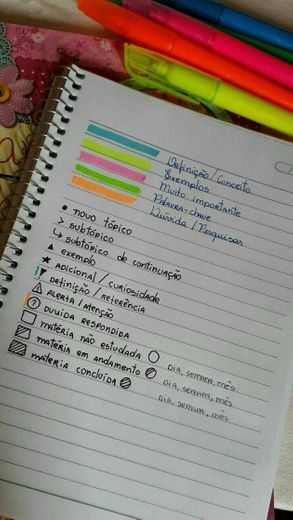 Definição/Conceito
Exemplos
Muito importante
Palavra-chave
Dúvida/Pesquisar
• NOVO TÓPICO
> SUBTÓPICO
↳ SUBTÓPICO DE CONTINUAÇÃO
▲ EXEMPLO
★ ADICIONAL/CURIOSIDADE
DEFINIÇÃO/REFERÊNCIA
⚠ ALERTA/ATENÇÃO
? DUVIDA RESPONDIDA
MATÉRIA NÃO ESTUDADA
MATÉRIA EM ANDAMENTO DIA, SEMANA, MÊS
MATERIA CONCLUÍDA DIA, SEMANA, MÊS
DIA, SEMANA, MÊS